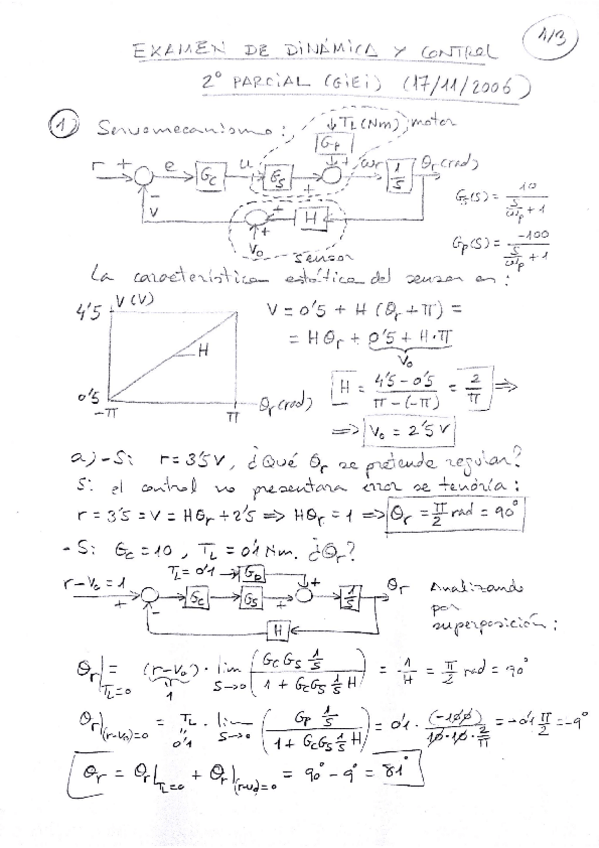 1/3
EXAMEN DE DINÁMICA Y CONTROL
2º PARCIAL (GIEI) (17/11/2006)
1) Servomecanismo: TL (Nm) motor
Gp
r + e Gc u Gs + + ωr 1/S θr (rad)
- V + H
+ V0 sensor
Gs(S) = 10 / (S/ωp + 1)
Gp(S) = -100 / (S/ωp + 1)
La característica estática del sensor es:
V (V)
4'5
H
0'5
-π π θr (rad)
V = 0'5 + H (θr + π) =
= Hθr + 0'5 + H·π
V0
H = (4'5 - 0'5) / (π - (-π)) = 2/π ⇒
⇒ V0 = 2'5 V
a) - Si r = 3'5 V, ¿Qué θr se pretende regular?
Si el control no presentara error se tendría:
r = 3'5 = V = Hθr + 2'5 ⇒ Hθr = 1 ⇒ θr = π/2 rad = 90°
- Si Gc = 10, TL = 0'1 Nm. ¿θr?
TL = 0'1 → Gp
r - V0 = 1 + - Gc Gs + + 1/S θr
H
Analizando
por
superposición:
θr|TL=0 = (r - V0) · lim S→0 (Gc Gs 1/S / (1 + Gc Gs 1/S H)) = 1/H = π/2 rad = 90°
1
θr|(r-V0)=0 = TL · lim S→0 (Gp 1/S / (1 + Gc Gs 1/S H)) = 0'1 · (-100) / (10·10·2/π) = -0'1 π/2 = -9°
0'1
θr = θr|TL=0 + θr|(r-V0)=0 = 90° - 9° = 81°